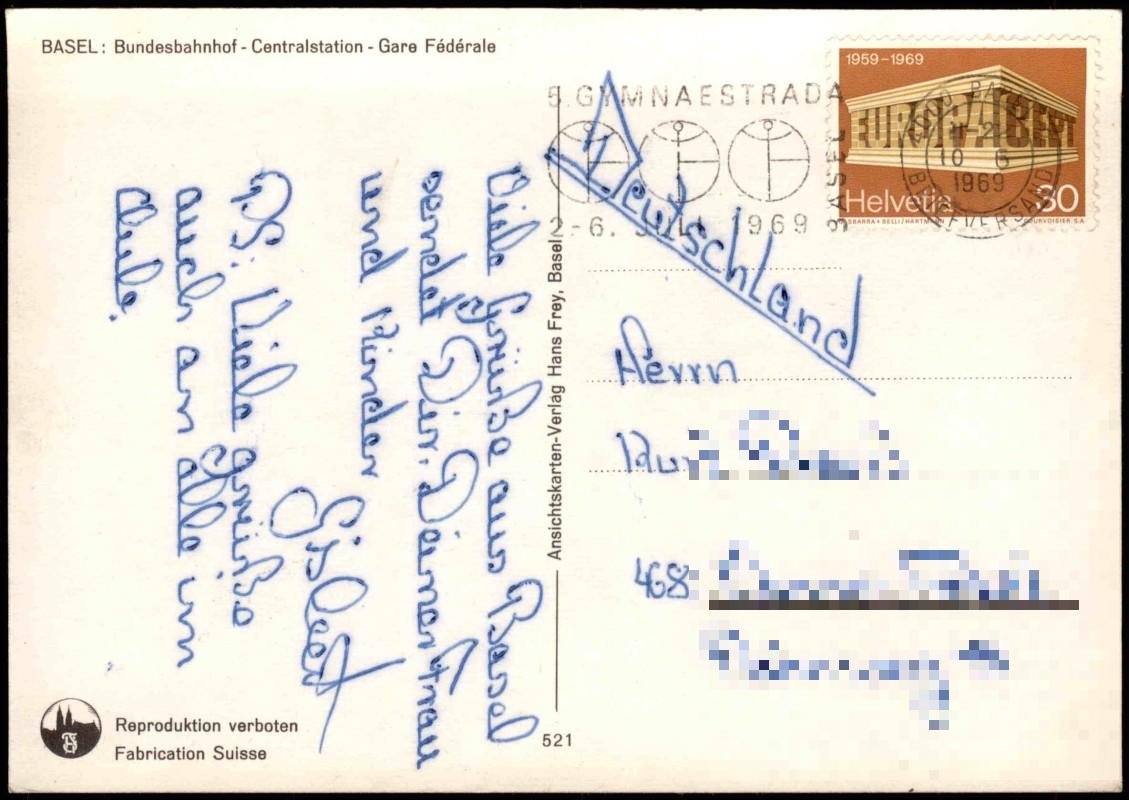 BASEL: Bundesbahnhof - Centralstation - Gare Fédérale
5. GYMNAESTRADA
2.-6. JULI 1969
BASEL
1959-1969
EUROPA CEPT
Helvetia 30
IBARRA + BELLI/HARTMANN COURVOISIER S.A.
4000 BASEL
10. 6
1969
BRIEFVERSAND
Viele Grüße aus Basel
sendet Dir, Deiner Frau
und Kinder
PS: Viele Grüße
auch an alle im
Ansichtskarten-Verlag Hans Frey, Basel
Deutschland
Herrn
468
521
Reproduktion verboten
Fabrication Suisse